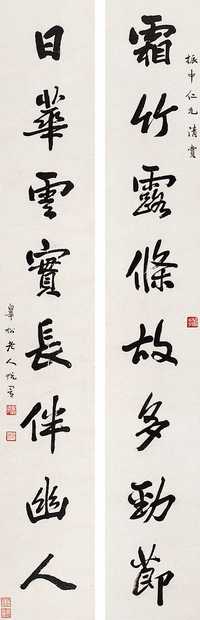 振中仁兄清賞
霜竹露條故多勁節
日華雲實長伴幽人